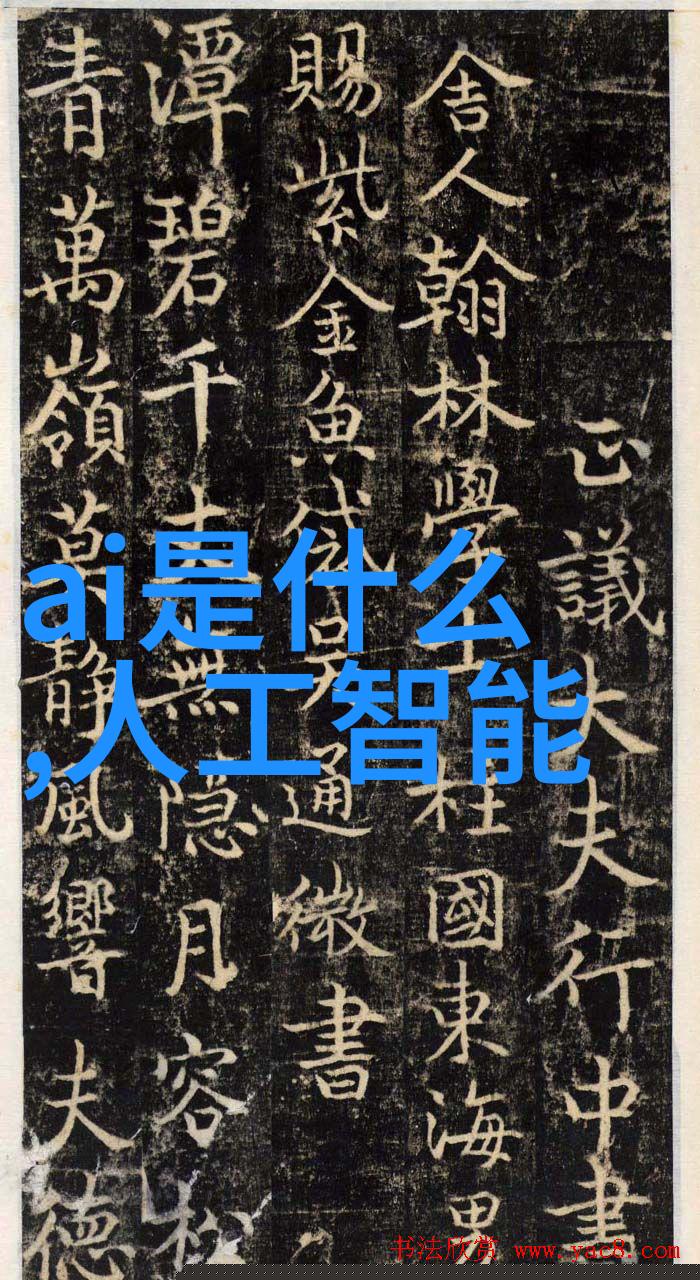 正議大夫行中書
舍人翰林學士柱國東海男
賜紫金魚袋吳通微書
潭碧千丈無隱月容松
青萬嶺莫静風響夫德
ai是什么
,人工智能
书法欣赏 www.yac8.com